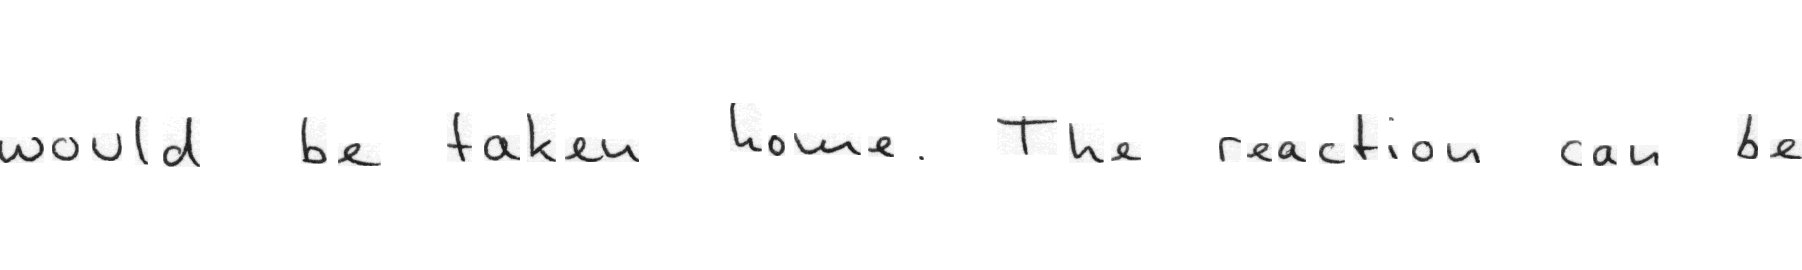 would be taken home. The reaction can be